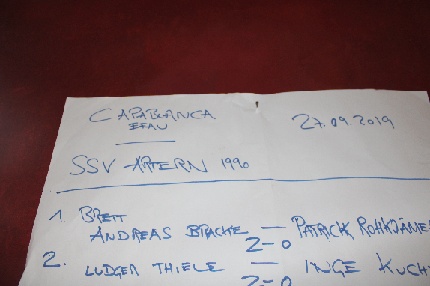 CAPABLANCA 27.09.2019
EFAU
SSV ARTERN 1990
1. BRETT
ANDREAS — PATRICK
2-0
2. LUDGER THIELE — INGE KUCH
2-0